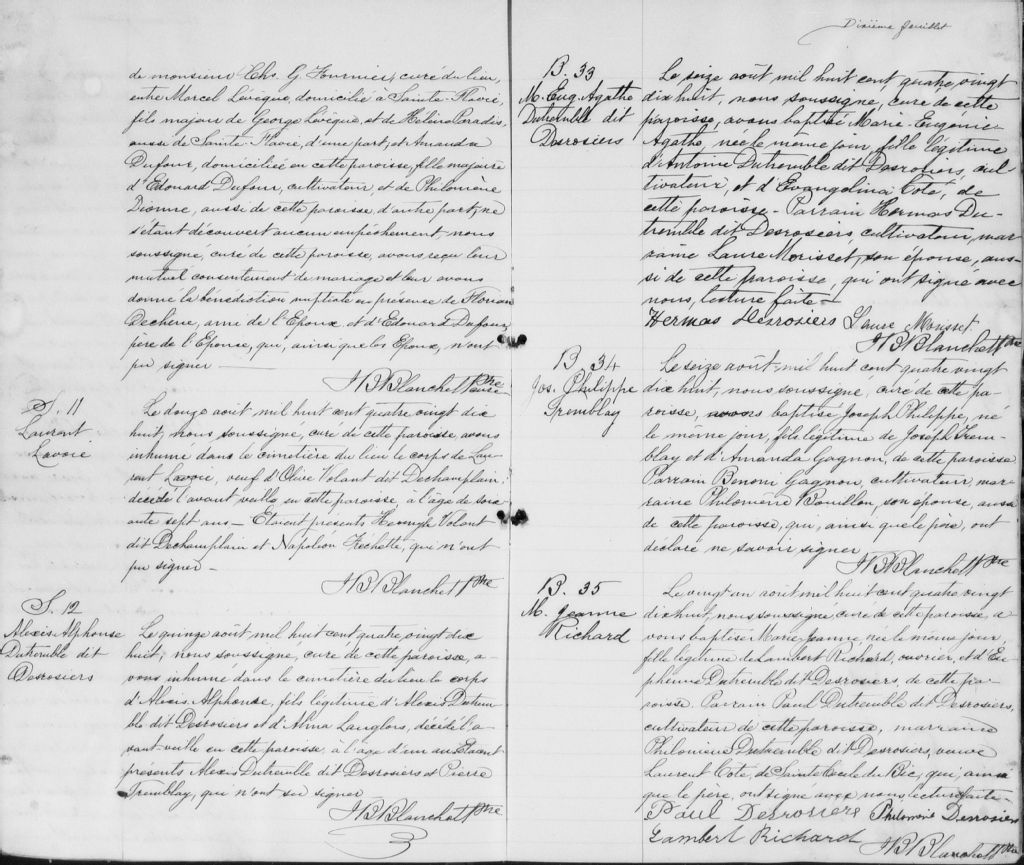 de monsieur Chs. G. Fournier, curé du lieu,
entre Marcel Lévêque, domicilié à Sainte-Flavie,
fils majeur de George Lévêque, et de Hélène Paradis,
aussi de Sainte-Flavie, d'une part, et Amanda
Dufour, domiciliée en cette paroisse, fille majeure
d'Edouard Dufour, cultivateur, et de Philomène
Dionne, aussi de cette paroisse, d'autre part, ne
s'étant découvert aucun empêchement, nous
soussigné, curé de cette paroisse, avons reçu leur
mutuel consentement de mariage et leur avons
donné la bénédiction nuptiale en présence de Florian
Dechène, ami de l'Epoux et d'Edouard Dufour,
père de l'Epouse, qui, ainsi que les Epoux, n'ont
pu signer
J B Blanchet Ptre
curé
S. 11
Laurent
Lavoie
Le douze août mil huit cent quatre vingt dix
huit, nous soussigné, curé de cette paroisse, avons
inhumé dans le cimetière du lieu le corps de Lau-
rent Lavoie, veuf d'Olive Volant dit Dechamplain,
décédé l'avant veille en cette paroisse à l'âge de soix-
ante sept ans - Etaient présents Volant
dit Dechamplain et Napoléon Fréchette, qui n'ont
pu signer -
J B Blanchet Ptre
S. 12
Alexis Alphonse
Dutremble dit
Desrosiers
Le quinze août mil huit cent quatre vingt dix
huit, nous soussigné, curé de cette paroisse, a-
vons inhumé dans le cimetière du lieu le corps
d'Alexis Alphonse, fils légitime d'Alexis Dutrem-
ble dit Desrosiers et d'Alvina Langlois, décédé l'a-
vant-veille en cette paroisse, à l'âge d'un an. Etaient
présents Alexis Dutremble dit Desrosiers et Pierre
Tremblay, qui n'ont su signer
J B Blanchet Ptre
Dixième feuillet
B. 33
M. Eug. Agathe
Dutremble dit
Desrosiers
Le seize août mil huit cent quatre vingt
dix huit, nous soussigné, curé de cette
paroisse, avons baptisé Marie-Eugénie-
Agathe, née le même jour, fille légitime
d'Antoine Dutremble dit Desrosiers, cul-
tivateur, et d'Evangelina Coté, de
cette paroisse - Parrain Hermas Du-
tremble dit Desrosiers, cultivateur, mar-
raine Laure Morisset, son épouse, aus-
si de cette paroisse, qui ont signé avec
nous, lecture faite -
Hermas Desrosiers Laure Morisset
J B Blanchet Ptre
B 34
Jos. Philippe
Tremblay
Le seize août mil huit cent quatre vingt
dix huit, nous soussigné, curé de cette pa-
roisse, avons baptisé Joseph Philippe, né
le même jour, fils légitime de Joseph Trem-
blay et d'Amanda Gagnon, de cette paroisse
Parrain Benoni Gagnon, cultivateur, mar-
raine Philomène Bouillon, son épouse, aussi
de cette paroisse, qui, ainsi que le père, ont
déclaré ne savoir signer
J B Blanchet Ptre
B. 35
M. Jeanne
Richard
Le vingt un août mil huit cent quatre vingt
dix huit, nous soussigné, curé de cette paroisse, a-
vons baptisé Marie Jeanne née le même jour,
fille légitime de Lambert Richard, ouvrier, et d'Eu-
phémie Dutremble dit Desrosiers, de cette pa-
roisse. Parrain Paul Dutremble dit Desrosiers,
cultivateur de cette paroisse, marraine
Philomène Dutremble dit Desrosiers, veuve
Laurent Coté, de Sainte Cécile du Bic, qui, ainsi
que le père, ont signé avec nous, lecture faite
Paul Desrosiers Philomène Desrosiers
Lambert Richard
J B Blanchet Ptre